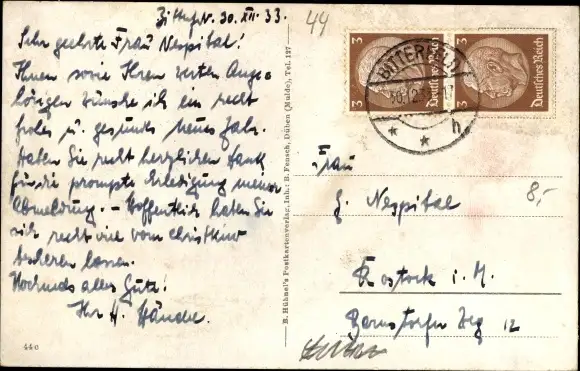 30. XII. 33.
Sehr geehrte Frau Nespital!
Ihnen sowie Ihren werten Ange-
hörigen wünsche ich ein recht
frohes u. gesundes neues Jahr.
Haben Sie recht herzlichen Dank
für die prompte Erledigung meiner
Abmeldung. - Hoffentlich haben Sie
sich recht viel vom Christkind
bescheren lassen.
Nochmals alles Gute!
Ihr H.
440
B. Hühnel's Postkartenverlag, Inh.: B. Fensch, Düben (Mulde), Tel. 127
44
3 3 Deutsches Reich
3 3 Deutsches Reich
BITTERFELD
h
Frau
Nespital
8,-
Rostock i. M.
Bernstorfer Weg 12